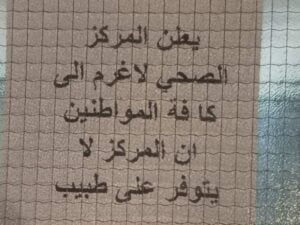 يعلن المركز
الصحي لاغرم الى
كافة المواطنين
ان المركز لا
يتوفر على طبيب